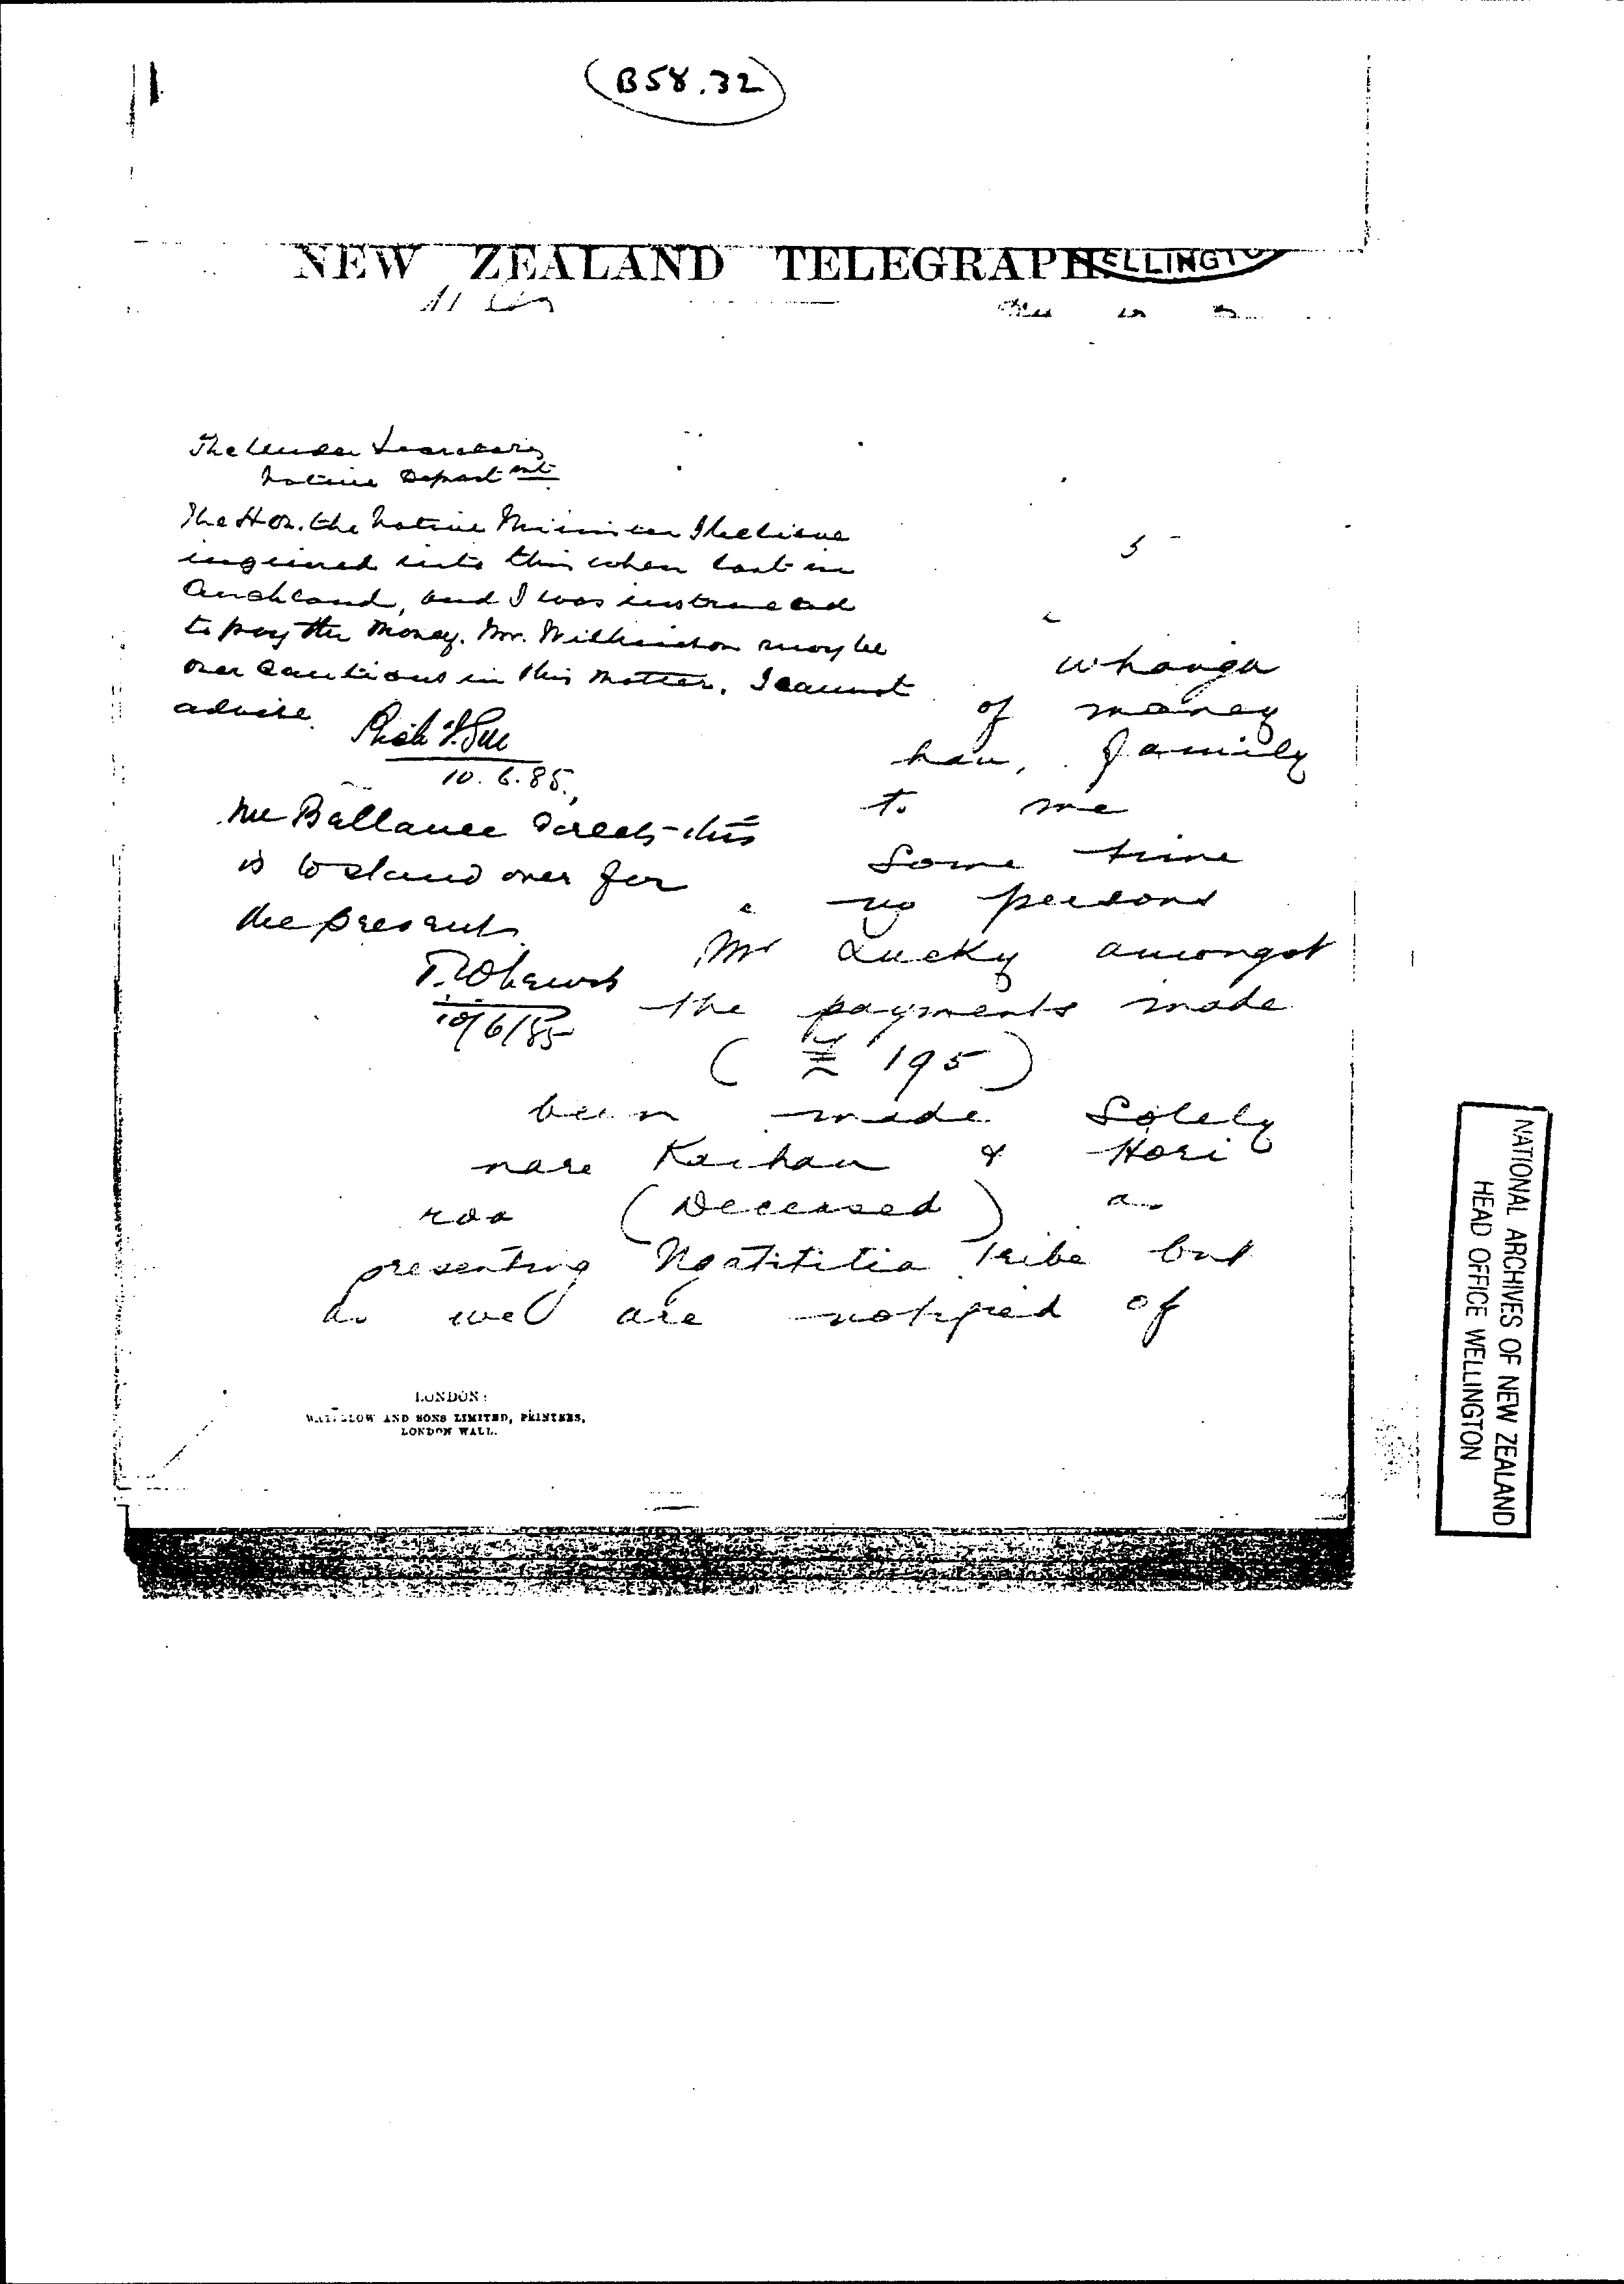 B58.32
NEW ZEALAND TELEGRAPH
ELLINGTO
The Under Secretary
Native Departmt
The Hon. the Native Minister I believe
inquired into this when last in
Auckland, and I was instructed
to pay the money. Mr. Wilkinson may be
over cautious in this matter. I cannot
advise.
10.6.85.
Mr Ballance directs this
is to stand over for
the present
T. W. Lewis
10/6/85
5
whanga
of money
hau, family
to me
Some time
no persons
Mr Lucky amongst
the payments made
(£ 195)
been made Solely
nare Kaihau & Hori
roa (Deceased) a
presenting Ngatititia Tribe but
as we are notified of
LONDON:
WATERLOW AND SONS LIMITED, PRINTERS,
LONDON WALL.
NATIONAL ARCHIVES OF NEW ZEALAND
HEAD OFFICE WELLINGTON